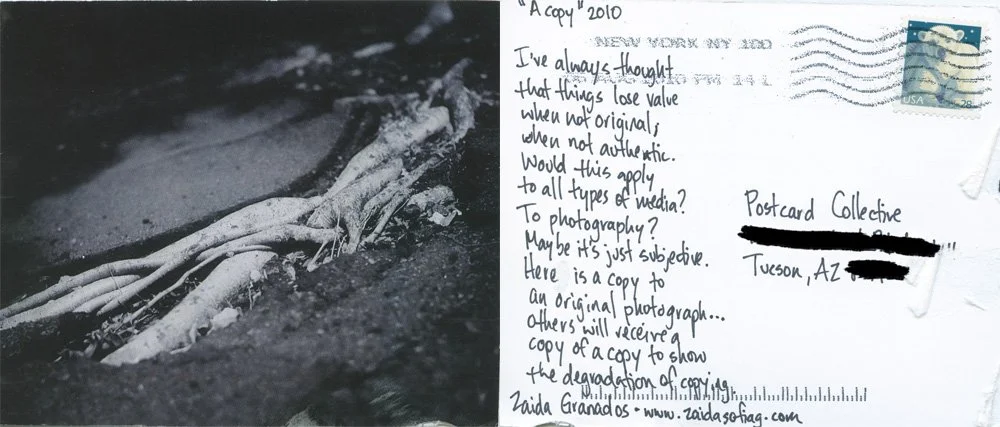 "A copy" 2010
NEW YORK NY 100
2010 PM 14 L
I've always thought
that things lose value
when not original,
when not authentic.
Would this apply
to all types of media?
To photography?
Maybe it's just subjective.
Here is a copy to
an original photograph...
Others will receive a
copy of a copy to show
the degradation of copying.
Zaida Granados • www.zaidasofiag.com
USA 28
Postcard Collective
Tucson, AZ